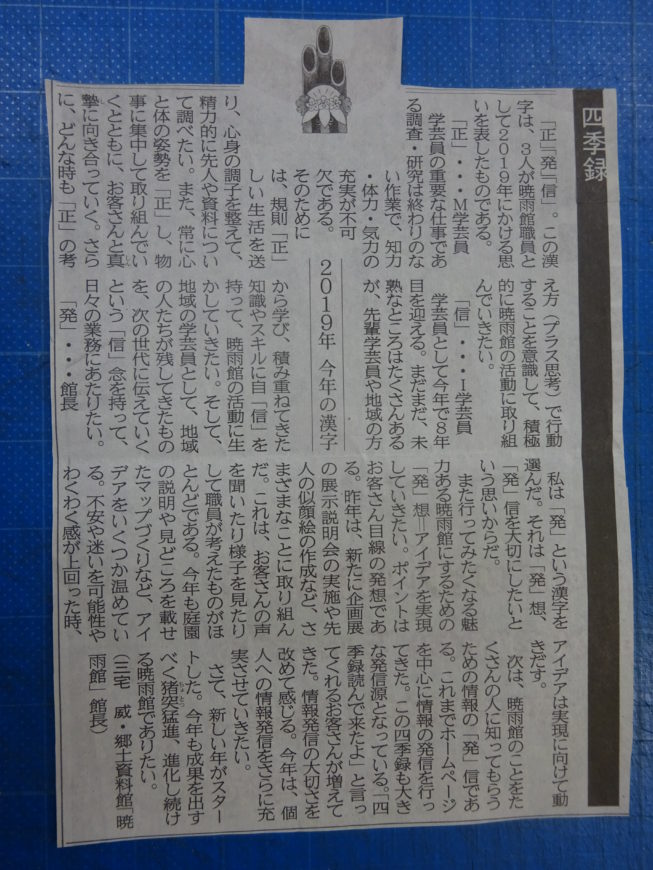 四季録
「正」「発」「信」。この漢
字は、3人が暁雨館職員と
して2019年にかける思
いを表したものである。
「正」・・・M学芸員
学芸員の重要な仕事であ
る調査・研究は終わりのな
い作業で、知力
・体力・気力の
充実が不可
欠である。
そのために
は、規則「正」
しい生活を送
り、心身の調子を整えて、
精力的に先人や資料につい
て調べたい。また、常に心
と体の姿勢を「正」し、物
事に集中して取り組んでい
くとともに、お客さんと真
摯に向き合っていく。さら
に、どんな時も「正」の考
2019年 今年の漢字
え方(プラス思考)で行動
することを意識して、積極
的に暁雨館の活動に取り組
んでいきたい。
「信」・・・I学芸員
学芸員として今年で8年
目を迎える。まだまだ、未
熟なところはたくさんある
が、先輩学芸員や地域の方
から学び、積み重ねてきた
知識やスキルに自「信」を
持って、暁雨館の活動に生
かしていきたい。そして、
地域の学芸員として、地域
の人たちが残してきたもの
を、次の世代に伝えていく
という「信」念を持って、
日々の業務にあたりたい。
「発」・・・館長
私は「発」という漢字を
選んだ。それは「発」想、
「発」信を大切にしたいと
いう思いからだ。
また行ってみたくなる魅
力ある暁雨館にするための
「発」想=アイデアを実現
していきたい。ポイントは
お客さん目線の発想であ
る。昨年は、新たに企画展
の展示説明会の実施や先
人の似顔絵の作成など、さ
まざまなことに取り組ん
だ。これは、お客さんの声
を聞いたり様子を見たり
して職員が考えたものがほ
とんどである。今年も庭園
の説明や見どころを載せ
たマップづくりなど、アイ
デアをいくつか温めてい
る。不安や迷いを可能性や
わくわく感が上回った時、
アイデアは実現に向けて動
きだす。
次は、暁雨館のことをた
くさんの人に知ってもらう
ための情報の「発」信であ
る。これまでホームページ
を中心に情報の発信を行っ
てきた。この四季録も大き
な発信源となっている。「四
季録読んで来たよ」と言っ
てくれるお客さんが増えて
きた。情報発信の大切さを
改めて感じる。今年は、個
人への情報発信をさらに充
実させていきたい。
さて、新しい年がスター
トした。今年も成果を出す
べく猪突猛進、進化し続け
る暁雨館でありたい。
(三宅 威・郷土資料館「暁
雨館」館長)